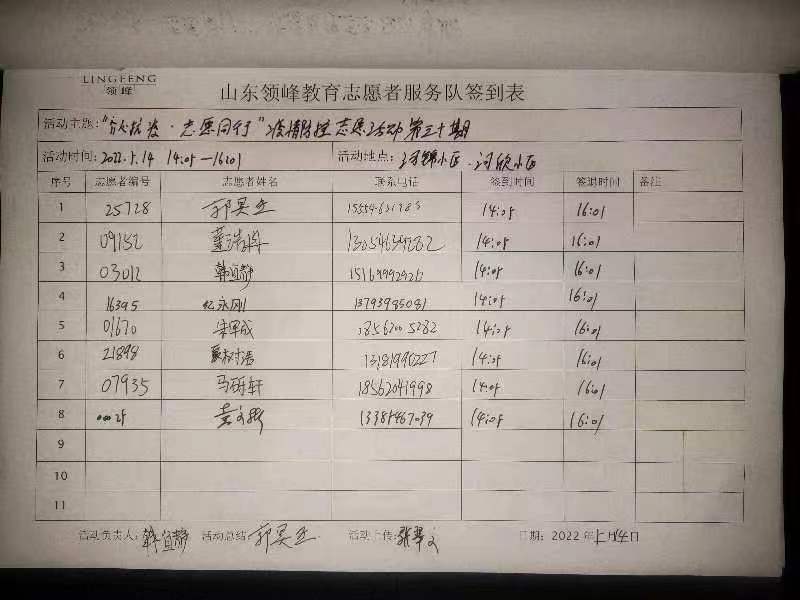 LINGFENG
领峰
山东领峰教育志愿者服务队签到表
活动主题:"齐心抗疫·志愿同行"疫情防控志愿活动第三十期
活动时间:2022.5.14 14:05—16:01 活动地点:河锦小区、河欣小区
序号 志愿者编号 志愿者姓名 联系电话 签到时间 签退时间 备注
1 25728 郭昊 14:05 16:01
2 09152 14:05 16:01
3 03012 韩宜静 14:05 16:01
4 16395 纪永刚 13793995081 14:05 16:01
5 01670 宋军成 14:05 16:01
6 21898 14:05 16:01
7 07935 马 轩 18562041998 14:05 16:01
8 14:05 16:01
9
10
11
活动负责人:韩宜静 活动总结:郭昊 活动上传:张翠文 日期:2022年5月14日